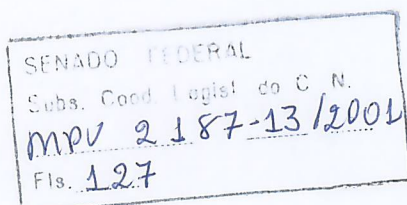 SENADO FEDERAL
Subs. Coord. Legisl. do C. N.
MPV 2187-13/2001
Fls. 127